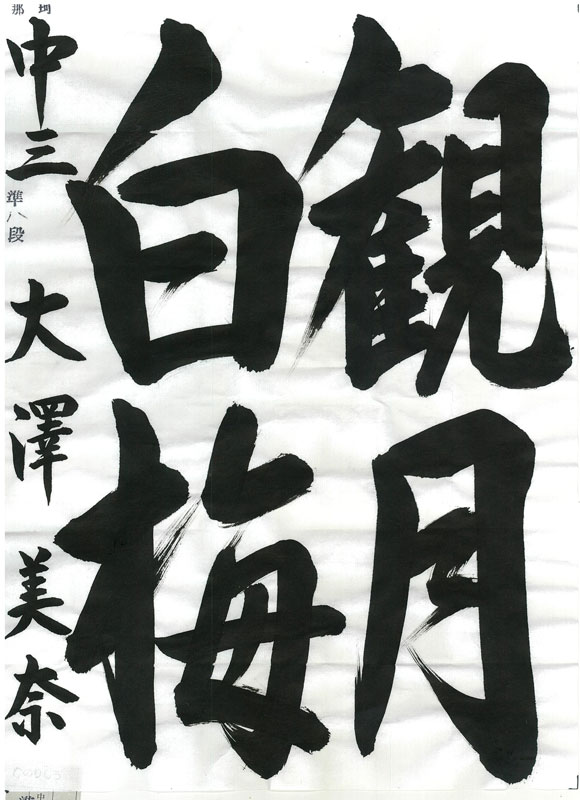 観月
白梅
中三 準八段 大澤美奈
那珂